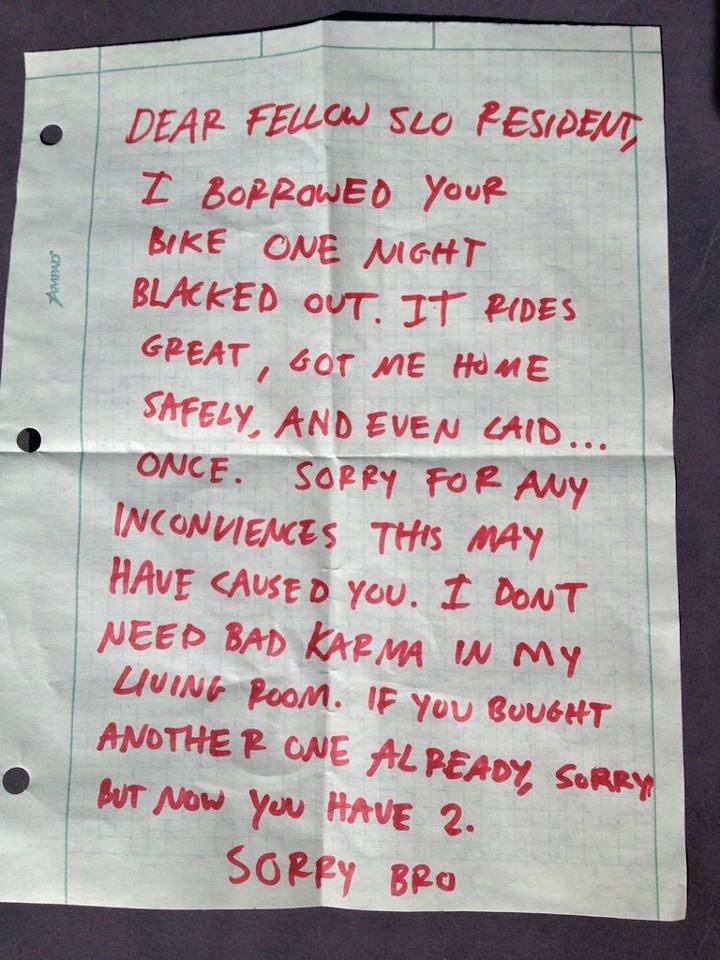 AMPAD
DEAR FELLOW SLO RESIDENT,
I BORROWED YOUR
BIKE ONE NIGHT
BLACKED OUT. IT RIDES
GREAT, GOT ME HOME
SAFELY, AND EVEN LAID...
ONCE. SORRY FOR ANY
INCONVIENCES THIS MAY
HAVE CAUSED YOU. I DONT
NEED BAD KARMA IN MY
LIVING ROOM. IF YOU BOUGHT
ANOTHER ONE ALREADY, SORRY
BUT NOW YOU HAVE 2.
SORRY BRO